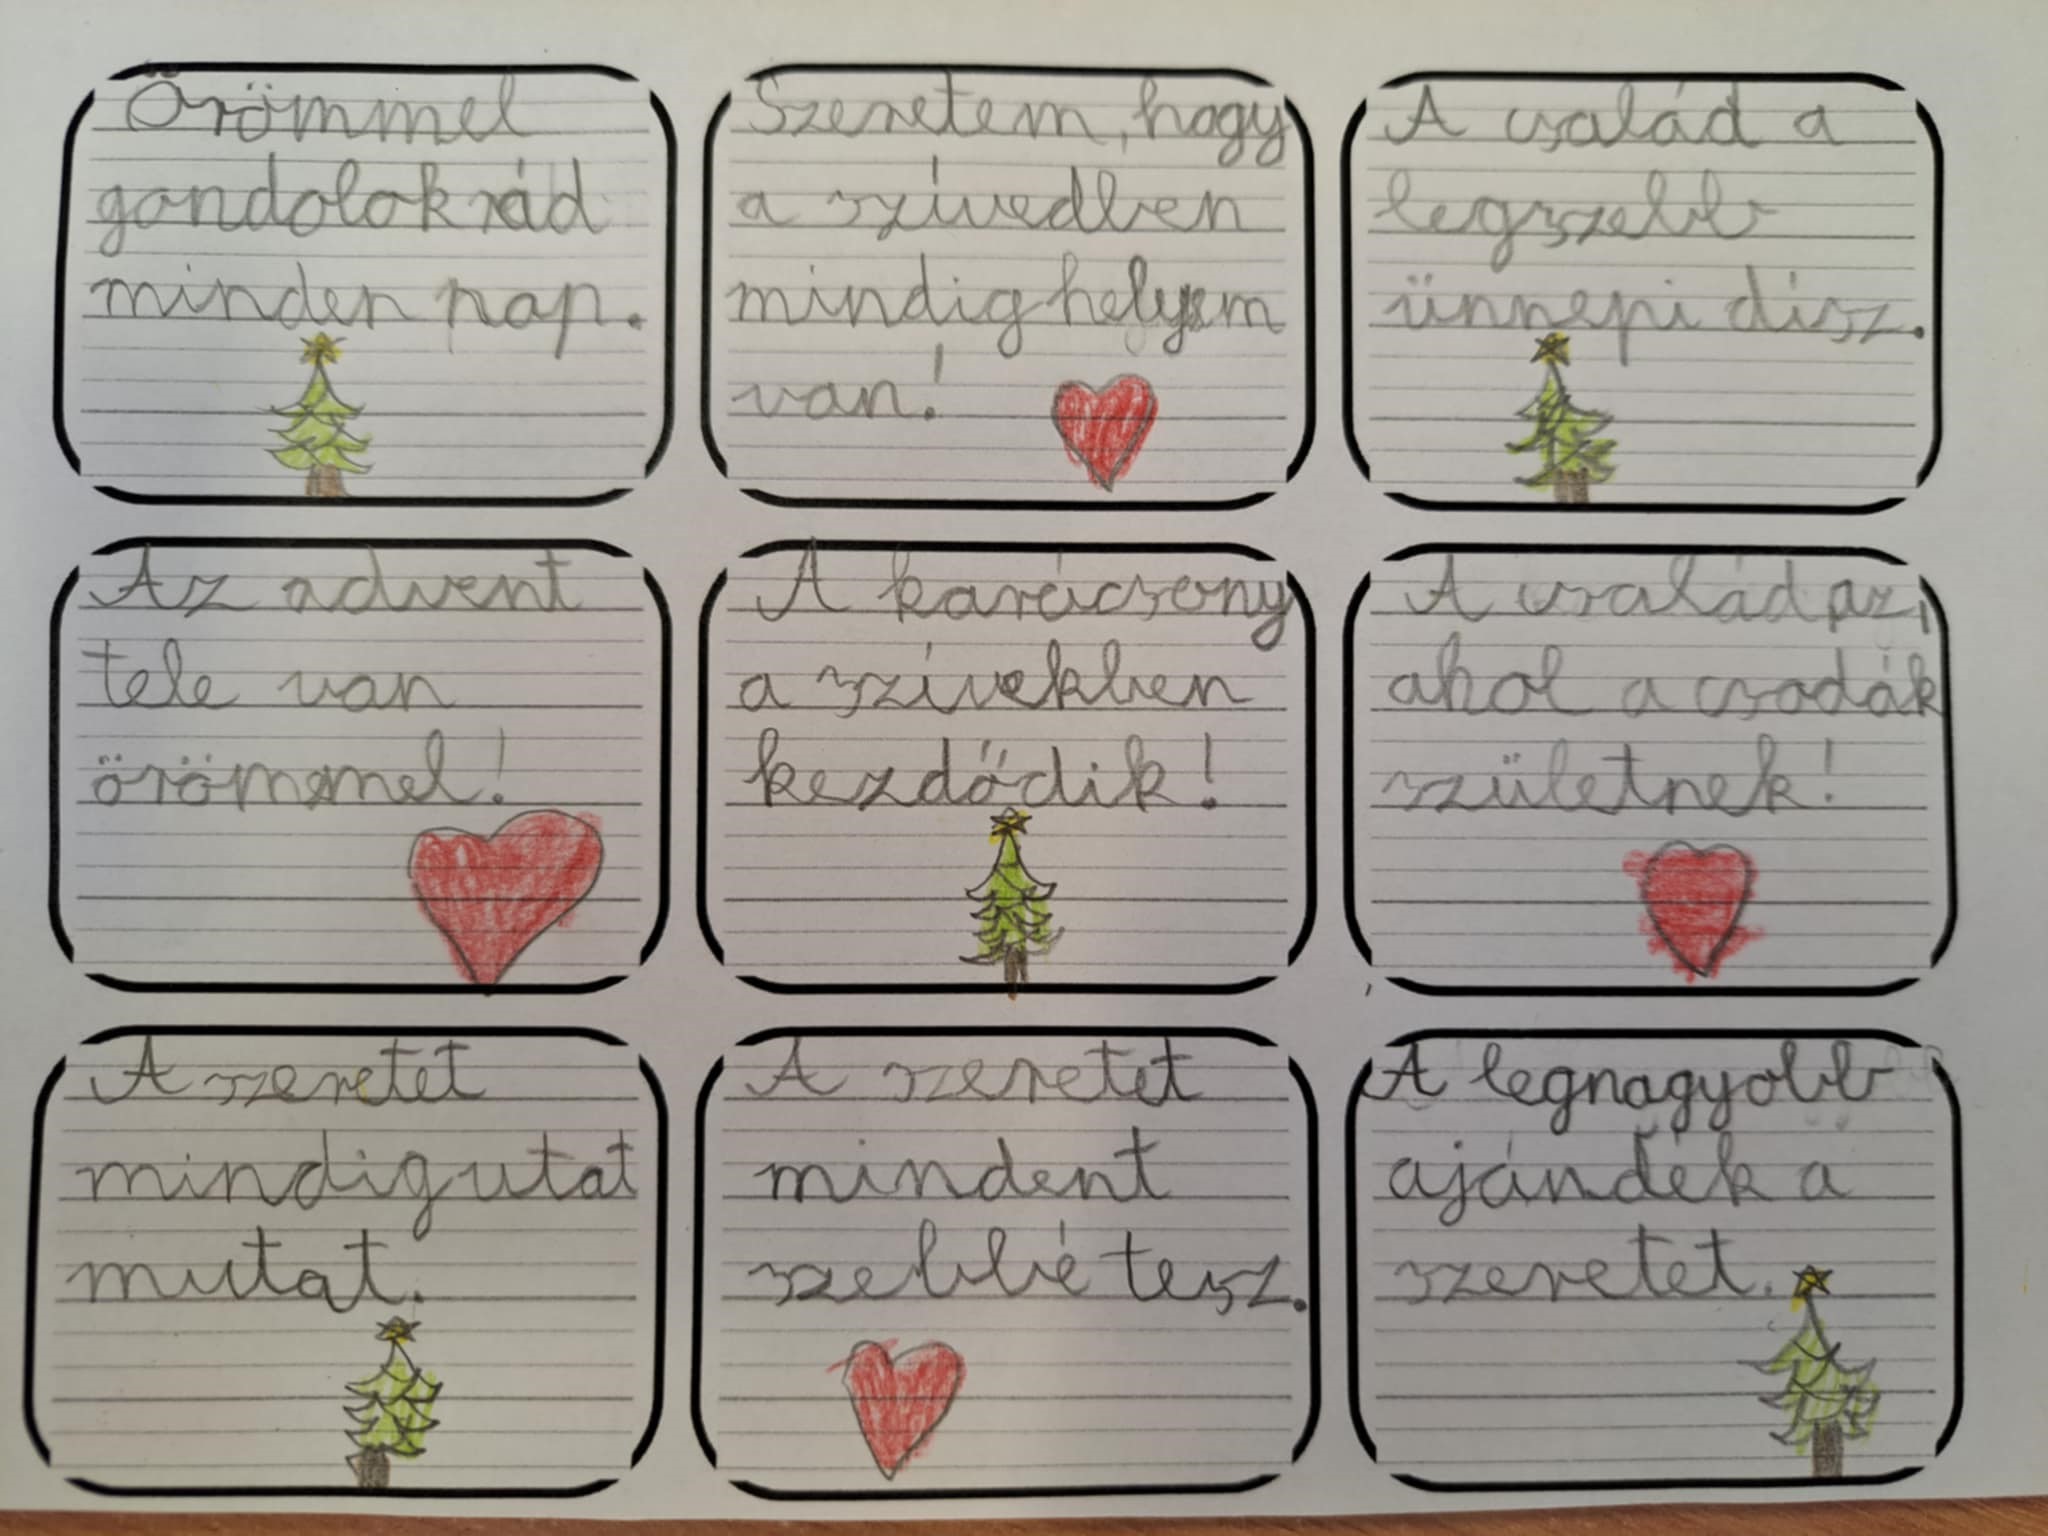 Örömmel
gondolok rád
minden nap.
Szeretem, hogy
a szívedben
mindig helyem
van!
A család a
legszebb
ünnepi dísz.
Az advent
tele van
örömmel!
A karácsony
a szívekben
kezdődik!
A család az,
ahol a csodák
születnek!
A szeretet
mindig utat
mutat.
A szeretet
mindent
szebbé tesz.
A legnagyobb
ajándék a
szeretet.